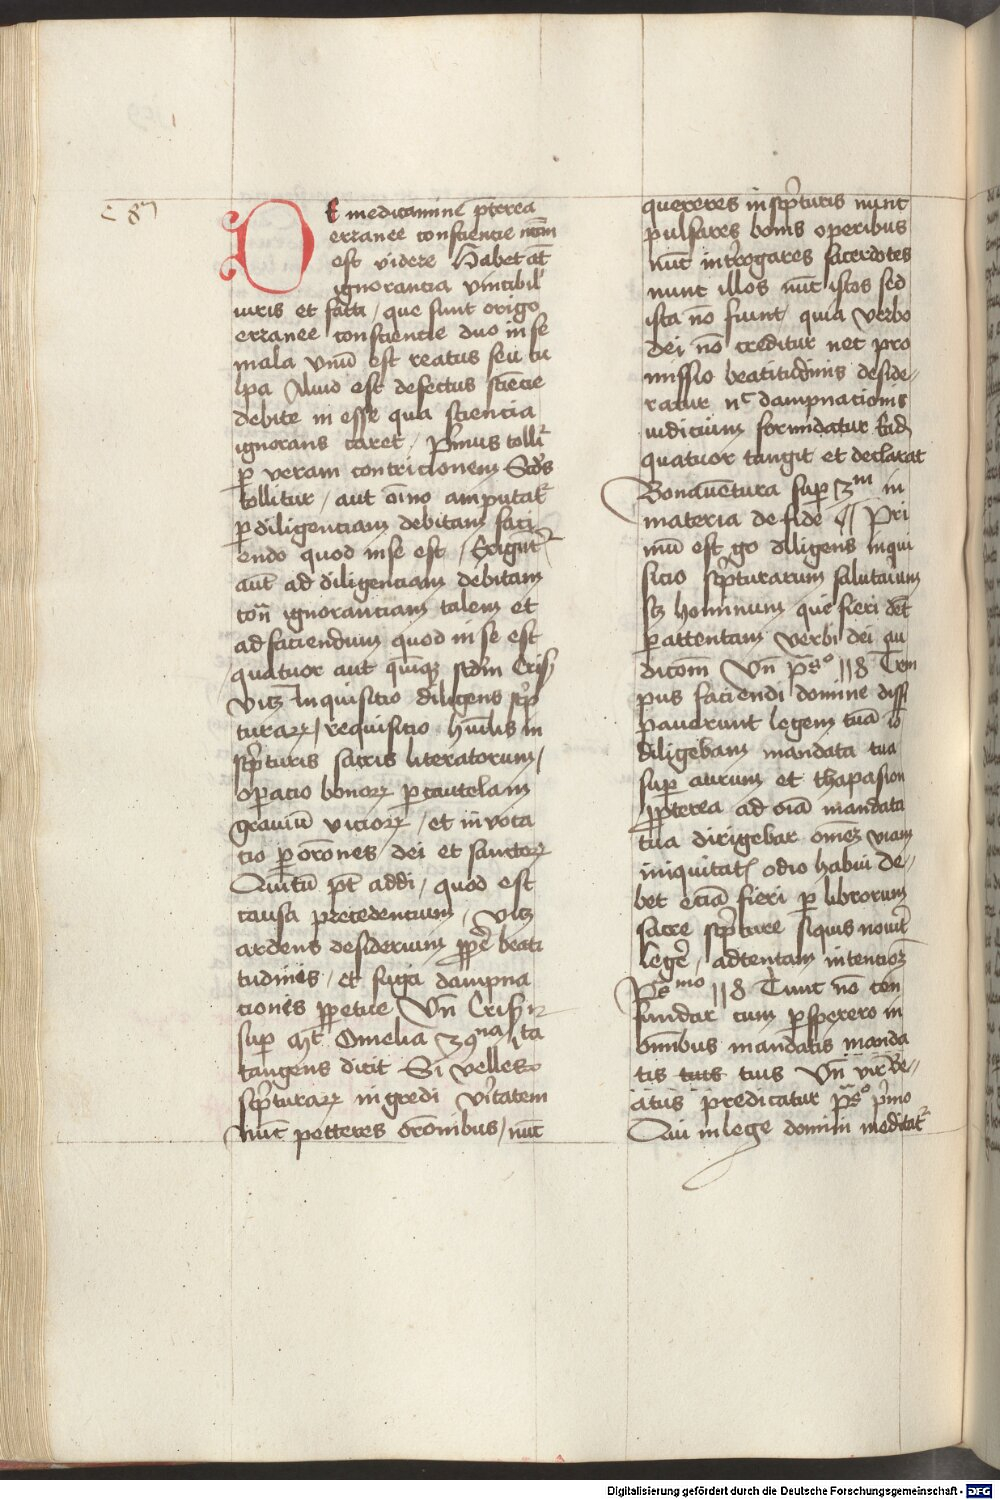 c 87
DE medicamine pterea
erranee consciencie notm
est videre Habet at
ignorancia vincibil
iuris et facti / que sunt origo
erranee consciencie duo in se
mala vnū est reatus seu cu
lpa Aliud est defectus sciēcie
debite in esse qua sciencia
ignorans caret / Pmus tolli
p veram contricionem Scds
tollitur / aut oīno amputat
p diligenciam debitam faci
endo quod in se est /
aut ad diligenciam debitam
con ignoranciam talem et
ad faciendum quod in se est
quatuor aut quīqz scdm Cris
vicz Inquisitio diligens scp
turarz / requisitio hūilis in
scpturis sacris literatorum /
opacio bonorz p cautelam
graviū viciorz / et invoca
cio p orōnes / dei et sanctorz
Quītū pt addi / quod est
causa precedencium / vicz
ardens desiderium ppe beati
tudinis / et fuga dampna
cionis ppetue / Vn Cris
sup mt Omelia 39na ista
tangens dicit Si velles
scpturarz ingredi vitatem
nūc petteres orōnibus / nūc
quereres in scpturis nunc
pulsares bonis operibus
nūc introgares sacerdotes
nunc illos nūc istos sed
ista nō fiunt / quia verbo
dei nō creditur nec pro
missio beatitudinis deside
ratur nc dampnacionis
iudicium formidatur Ead
quatuor tangit et declarat
Bonaventura sup 3m in
materia de fide // Pri
mū est go diligens inqui
sicio scpturarum salutaium
scz hominum que fieri det
p attentam verbi dei au
dicōm Vn ps° 118 Tem
pus faciendi domine diss
ipaverunt legem tuā io
diligebam mandata tua
sup aurum et thapasion
ppterea ad oīa mandata
tua dirigebar omēz viam
iniquitat odio habui De
bet eciā fieri p librorum
sacre scpture siquis noverit
legere / adtentam intencioez
psmo 118 Tunc nō con
fundar cum pspexero in
omnibus mandatis manda
tis tuis tuis Vn vir Be
atus predicatur ps° pmo
Qui in lege domini meditat
Digitalisierung gefördert durch die Deutsche Forschungsgemeinschaft - DFG